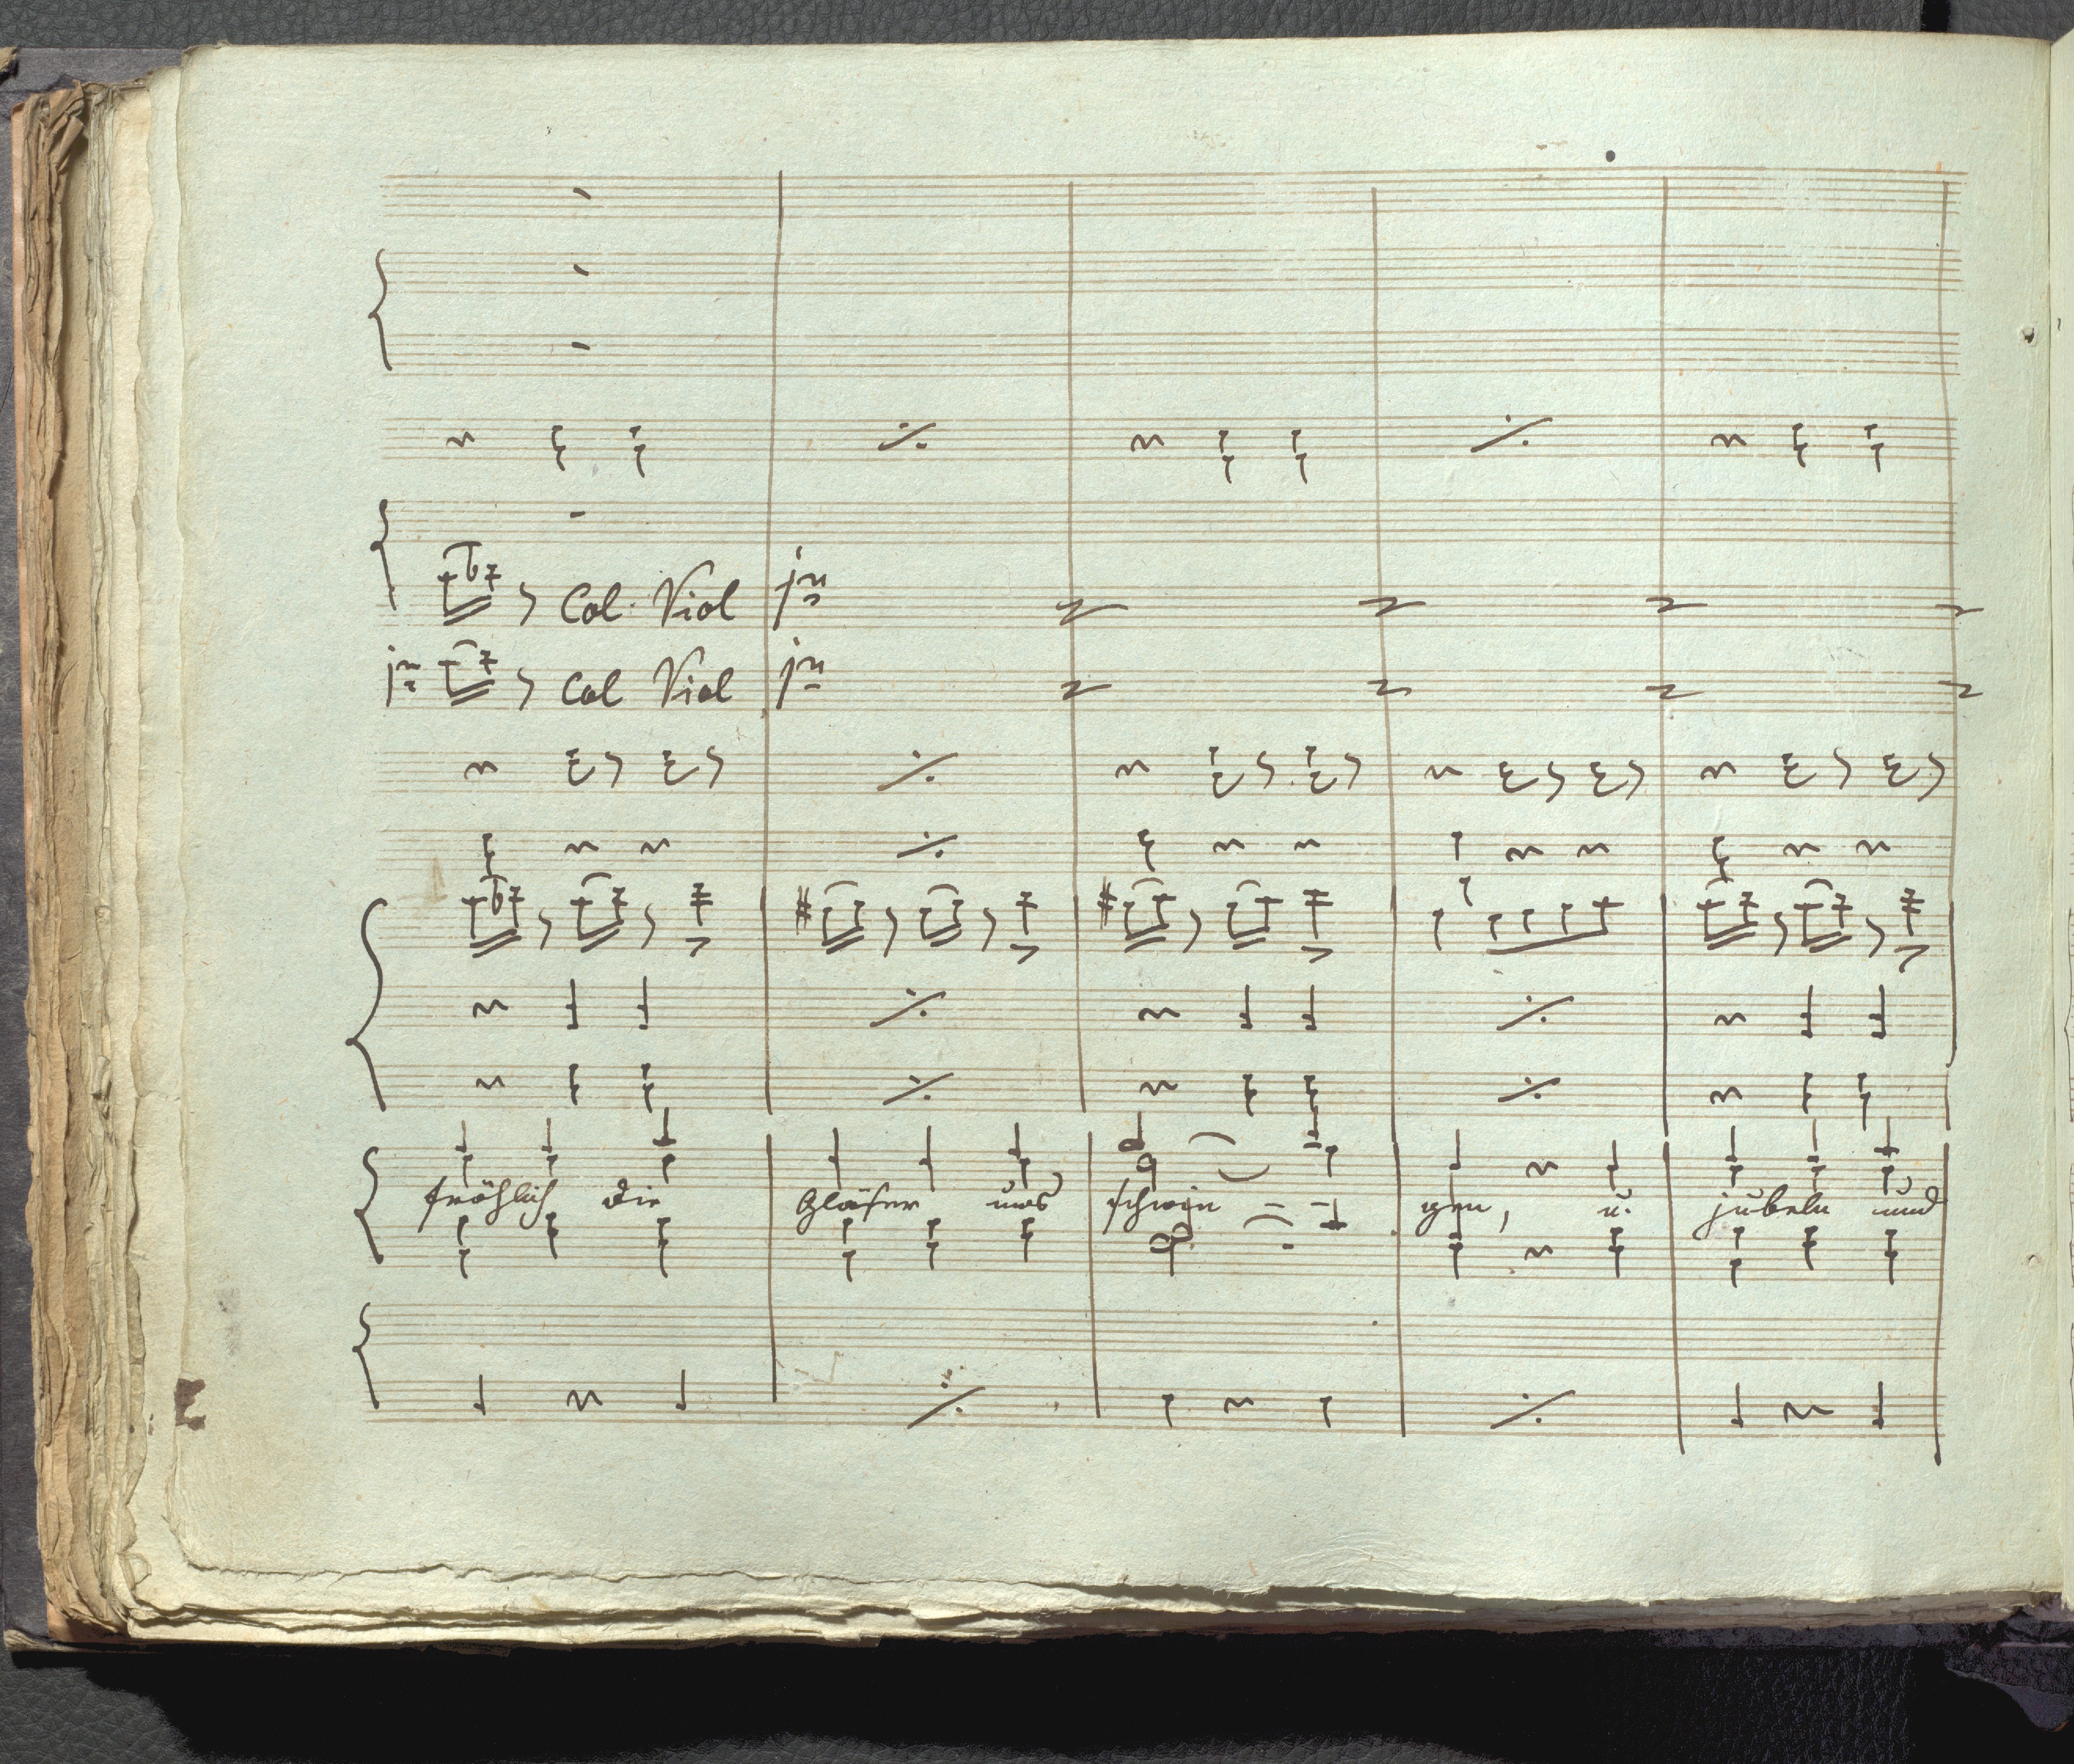 Col. Viol jmo
jmo Col Viol jmo
fröhlich die Gläser uns schwin - - gen, u. jubeln und